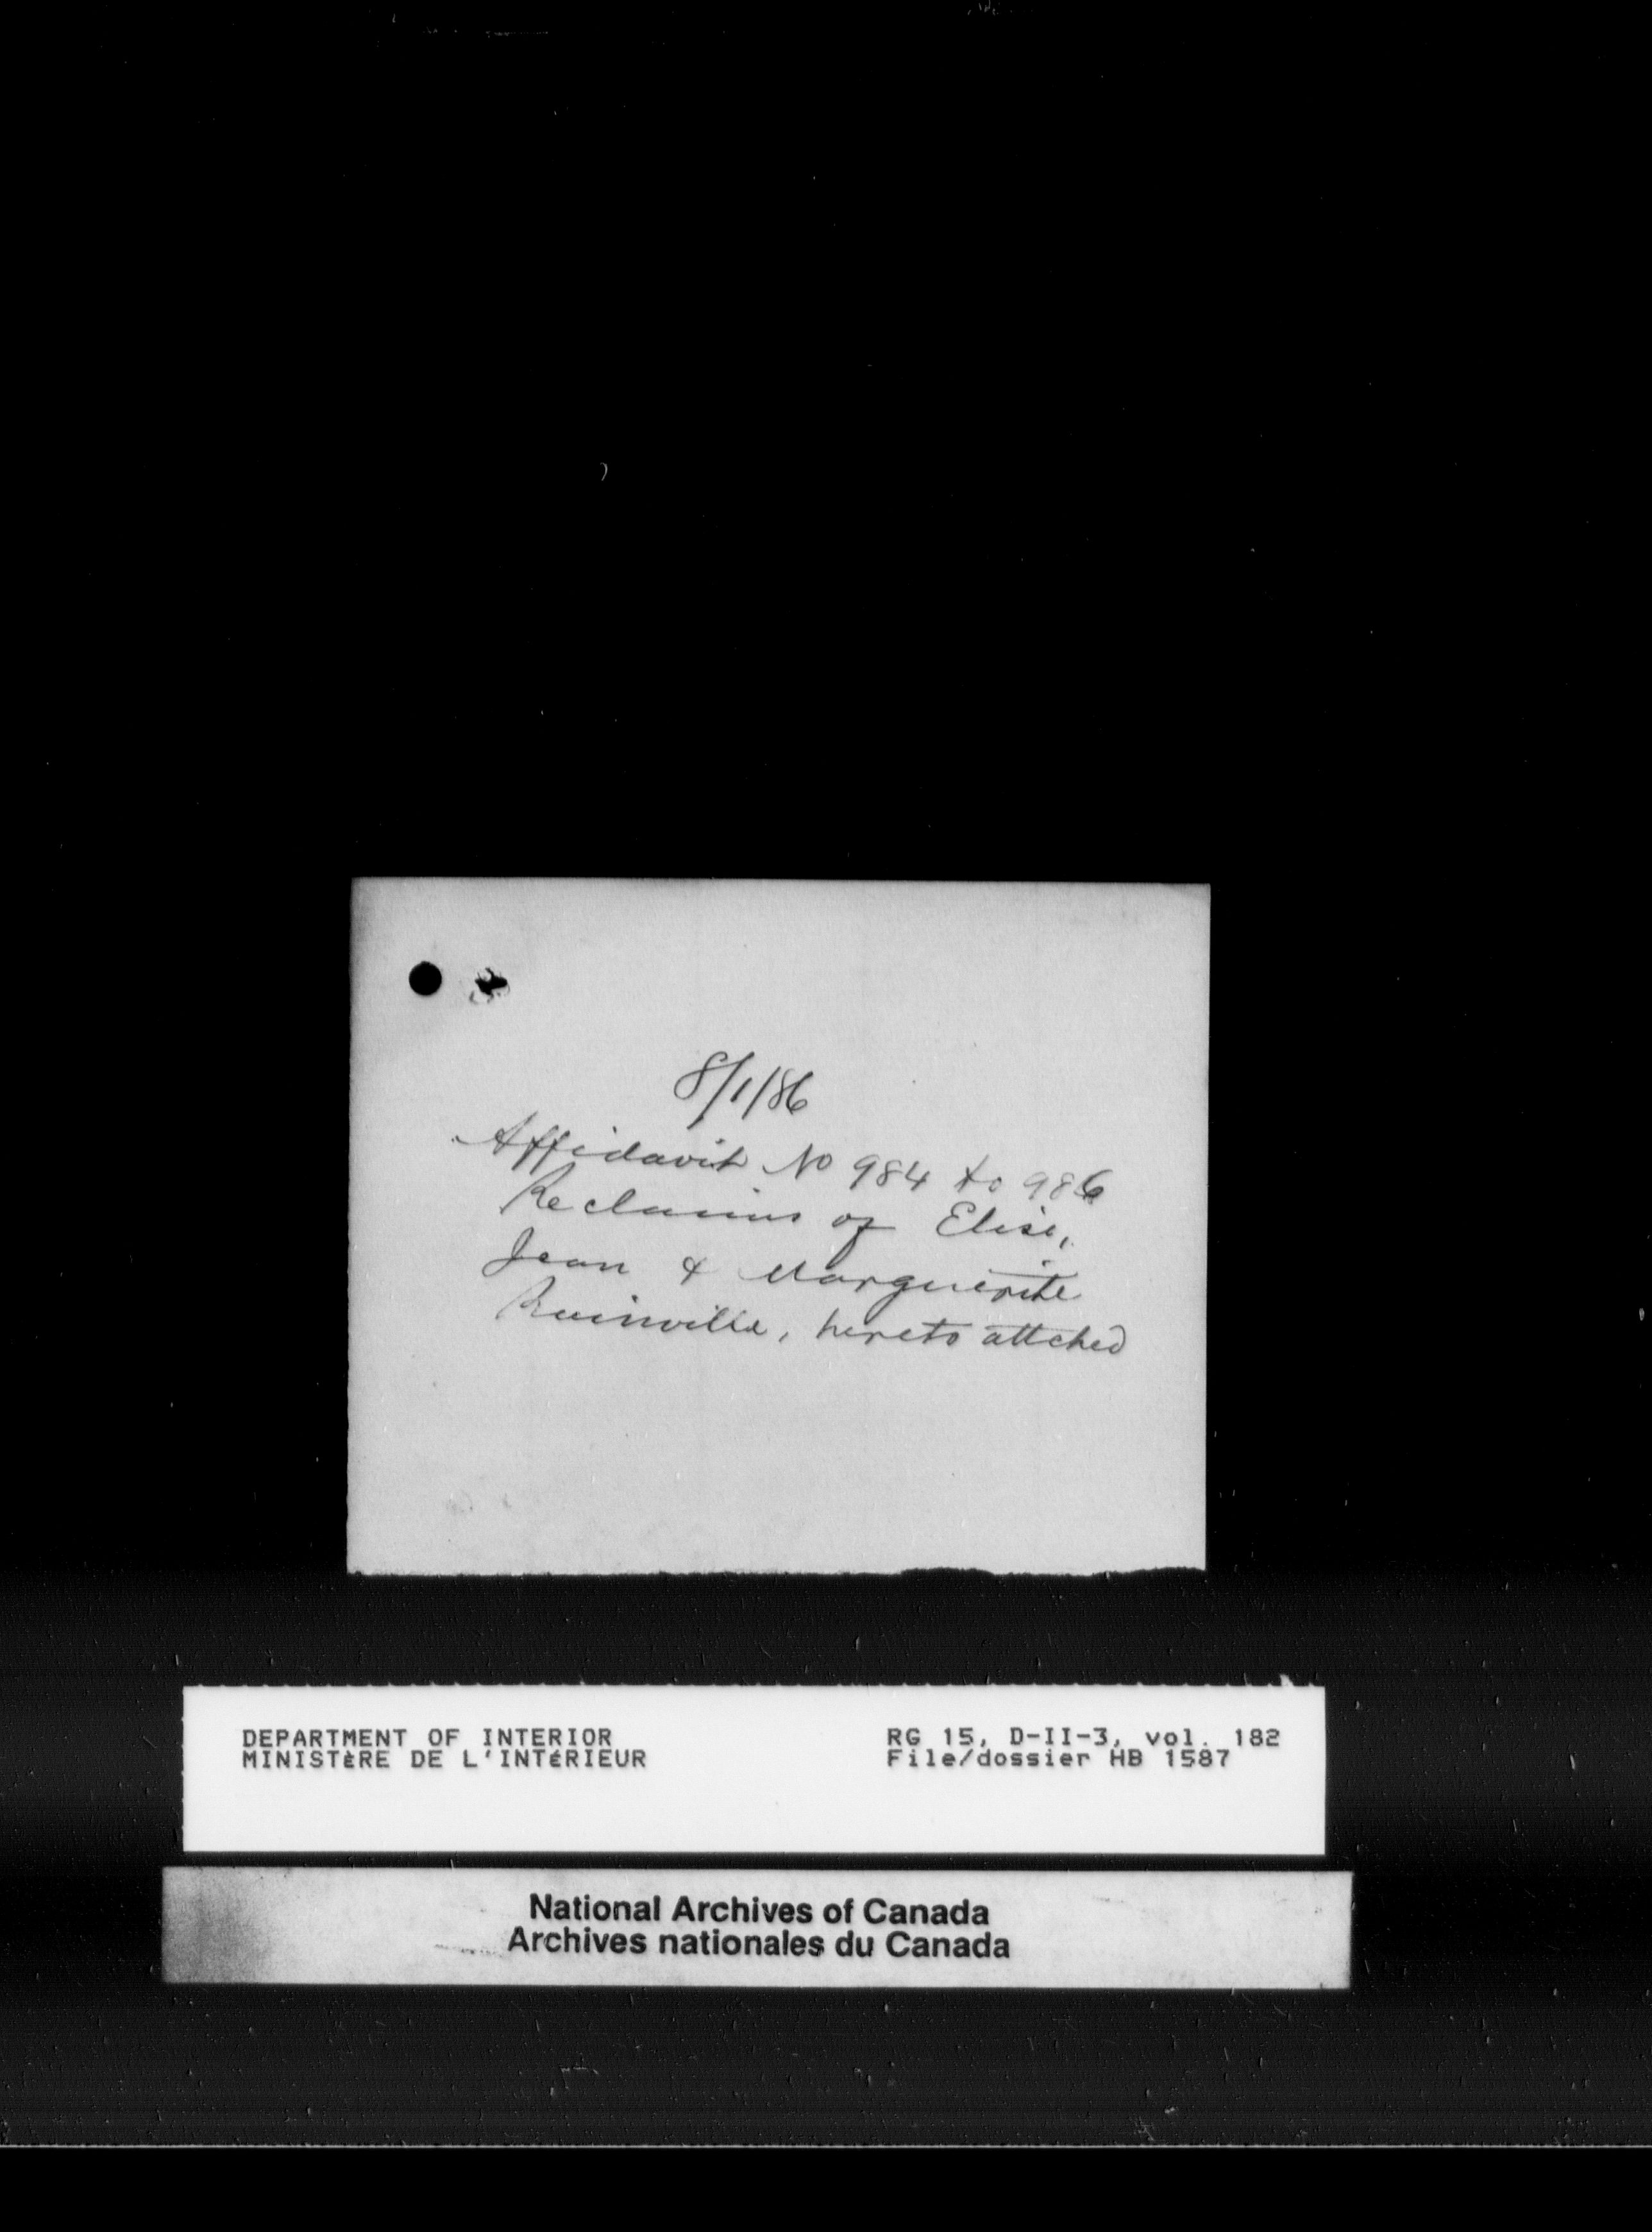 8/1/86
Affidavit No 984 to 986
Re claims of Elise,
Jean & Marguerite
Rainville, hereto attched
DEPARTMENT OF INTERIOR
MINISTÈRE DE L'INTÉRIEUR
RG 15, D-II-3, vol. 182
File/dossier HB 1587
National Archives of Canada
Archives nationales du Canada